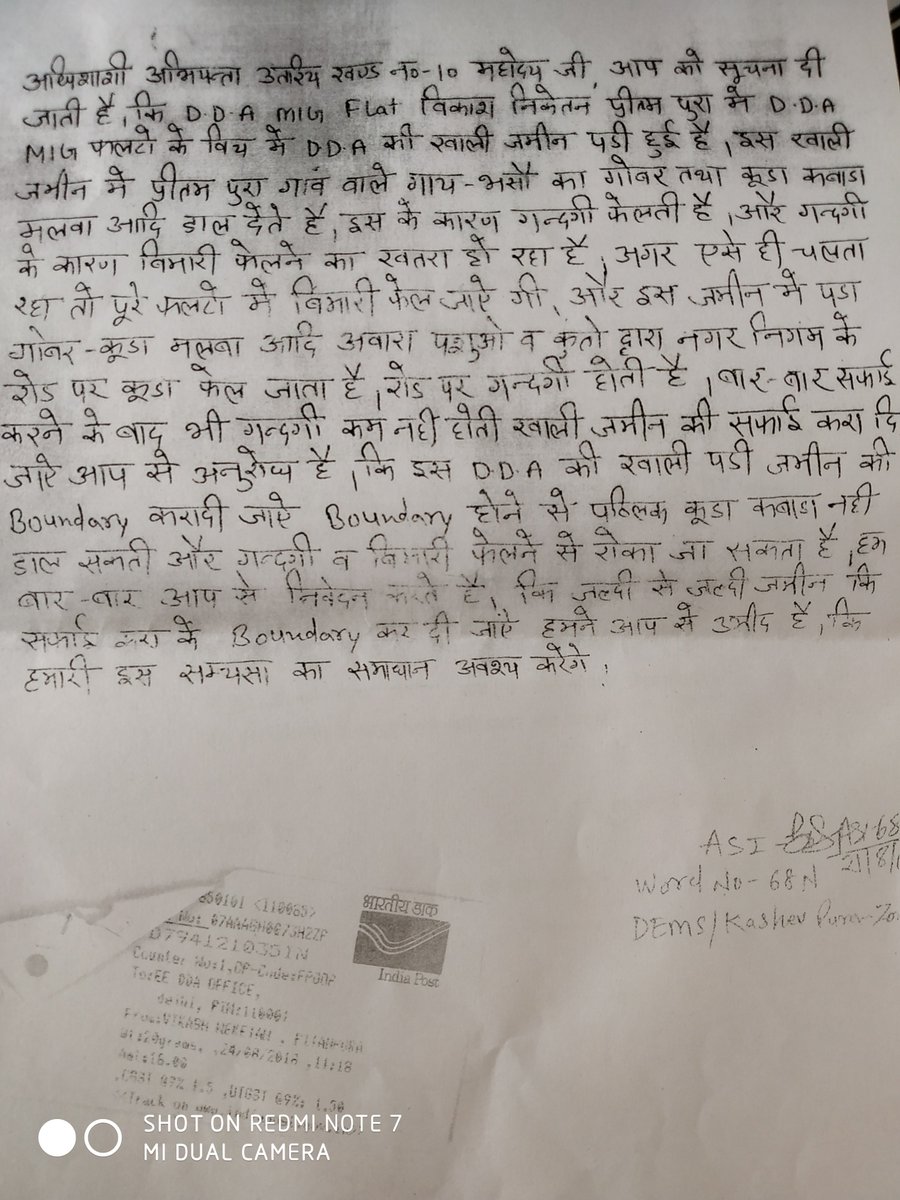 अधिशाशी अभियन्ता उतारिय खण्ड no-10 महोदय जी, आप को सूचना दी
जाती है, कि D.D.A MIG Flat विकाश निकेतन प्रीतम पुरा मे D.D.A
MIG फ्लटो के विच मे D.D.A की खाली जमीन पडी हुई है, इस खाली
जमीन मे प्रीतम पुरा गावं वाले गाय-भसौ का गोबर तथा कूडा कबाडा
मलवा आदि डाल देते है, इस के कारण गन्दगी फेलती है, और गन्दगी
के कारण बिमारी फेलने का खतरा हो रहा है, अगर एसे ही चलता
रहा तो पूरे फ्लटो मे बिमारी फेल जाऐ गी, और इस जमीन मे पडा
गोबर-कूडा मलबा आदि अवारा पशुओ व कुतो द्वारा नगर निगम के
रोड पर कूडा फेल जाता है, रोड पर गन्दगी होती है, बार-बार सफाई
करने के बाद भी गन्दगी कम नही होती खाली जमीन की सफाई करा दि
जाऐ आप से अनुरोध है, कि इस D.D.A की खाली पडी जमीन की
Boundary करादी जाऐ Boundary होने से पब्लिक कूडा कबाडा नही
डाल सकती और गन्दगी व बिमारी फेलने से रोका जा सकता है, हम
बार-बार आप से निवेदन करते है, कि जल्दी से जल्दी जमीन कि
सफाई करा के Boundary कर दी जाऐ हमने आप से उमीद है, कि
हमारी इस सम्यसा का समाधान अवश्य करेगे,
ASI
21/8/
Word No-68N
DEMS/Kashev Puram Zo
भारतीय डाक
India Post
<110085>
Counter No:1,OP-Code:
To:EE DDA OFFICE,
delhi, PIN:110001
From:VIKASH
Wt:20grams, ,24/08/2018 ,11:18
Amt:18.00
Track on
SHOT ON REDMI NOTE 7
MI DUAL CAMERA